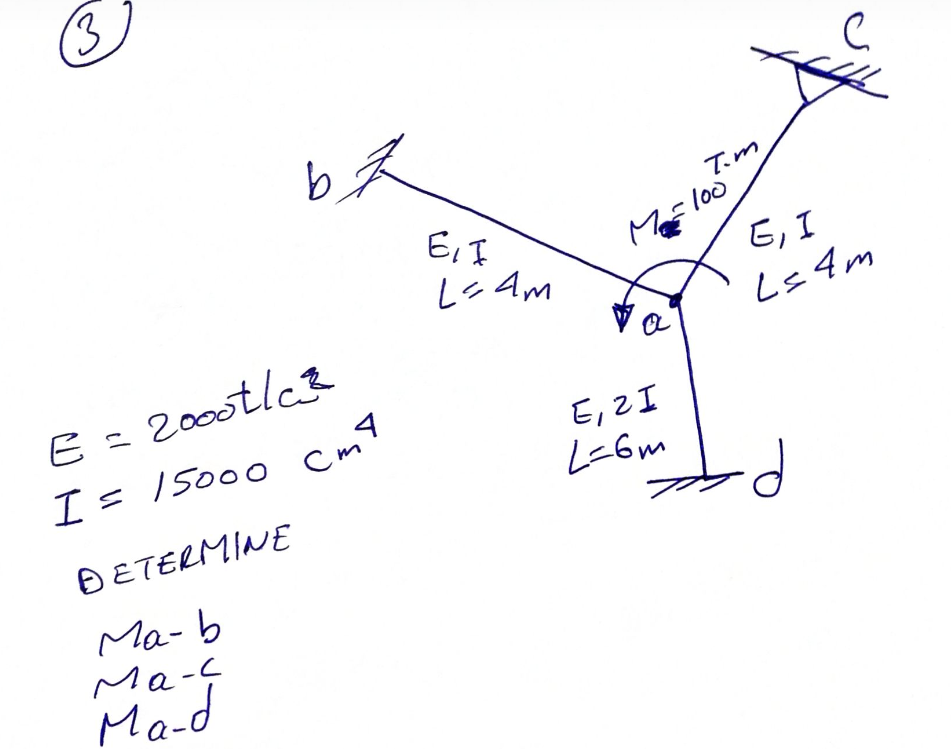 3
C
b
T.m
M = 100
E, I
L = 4m
E, I
L = 4m
a
E, 2I
L = 6m
d
E = 2000 t/c²
I = 15000 cm⁴
DETERMINE
Ma-b
Ma-c
Ma-d